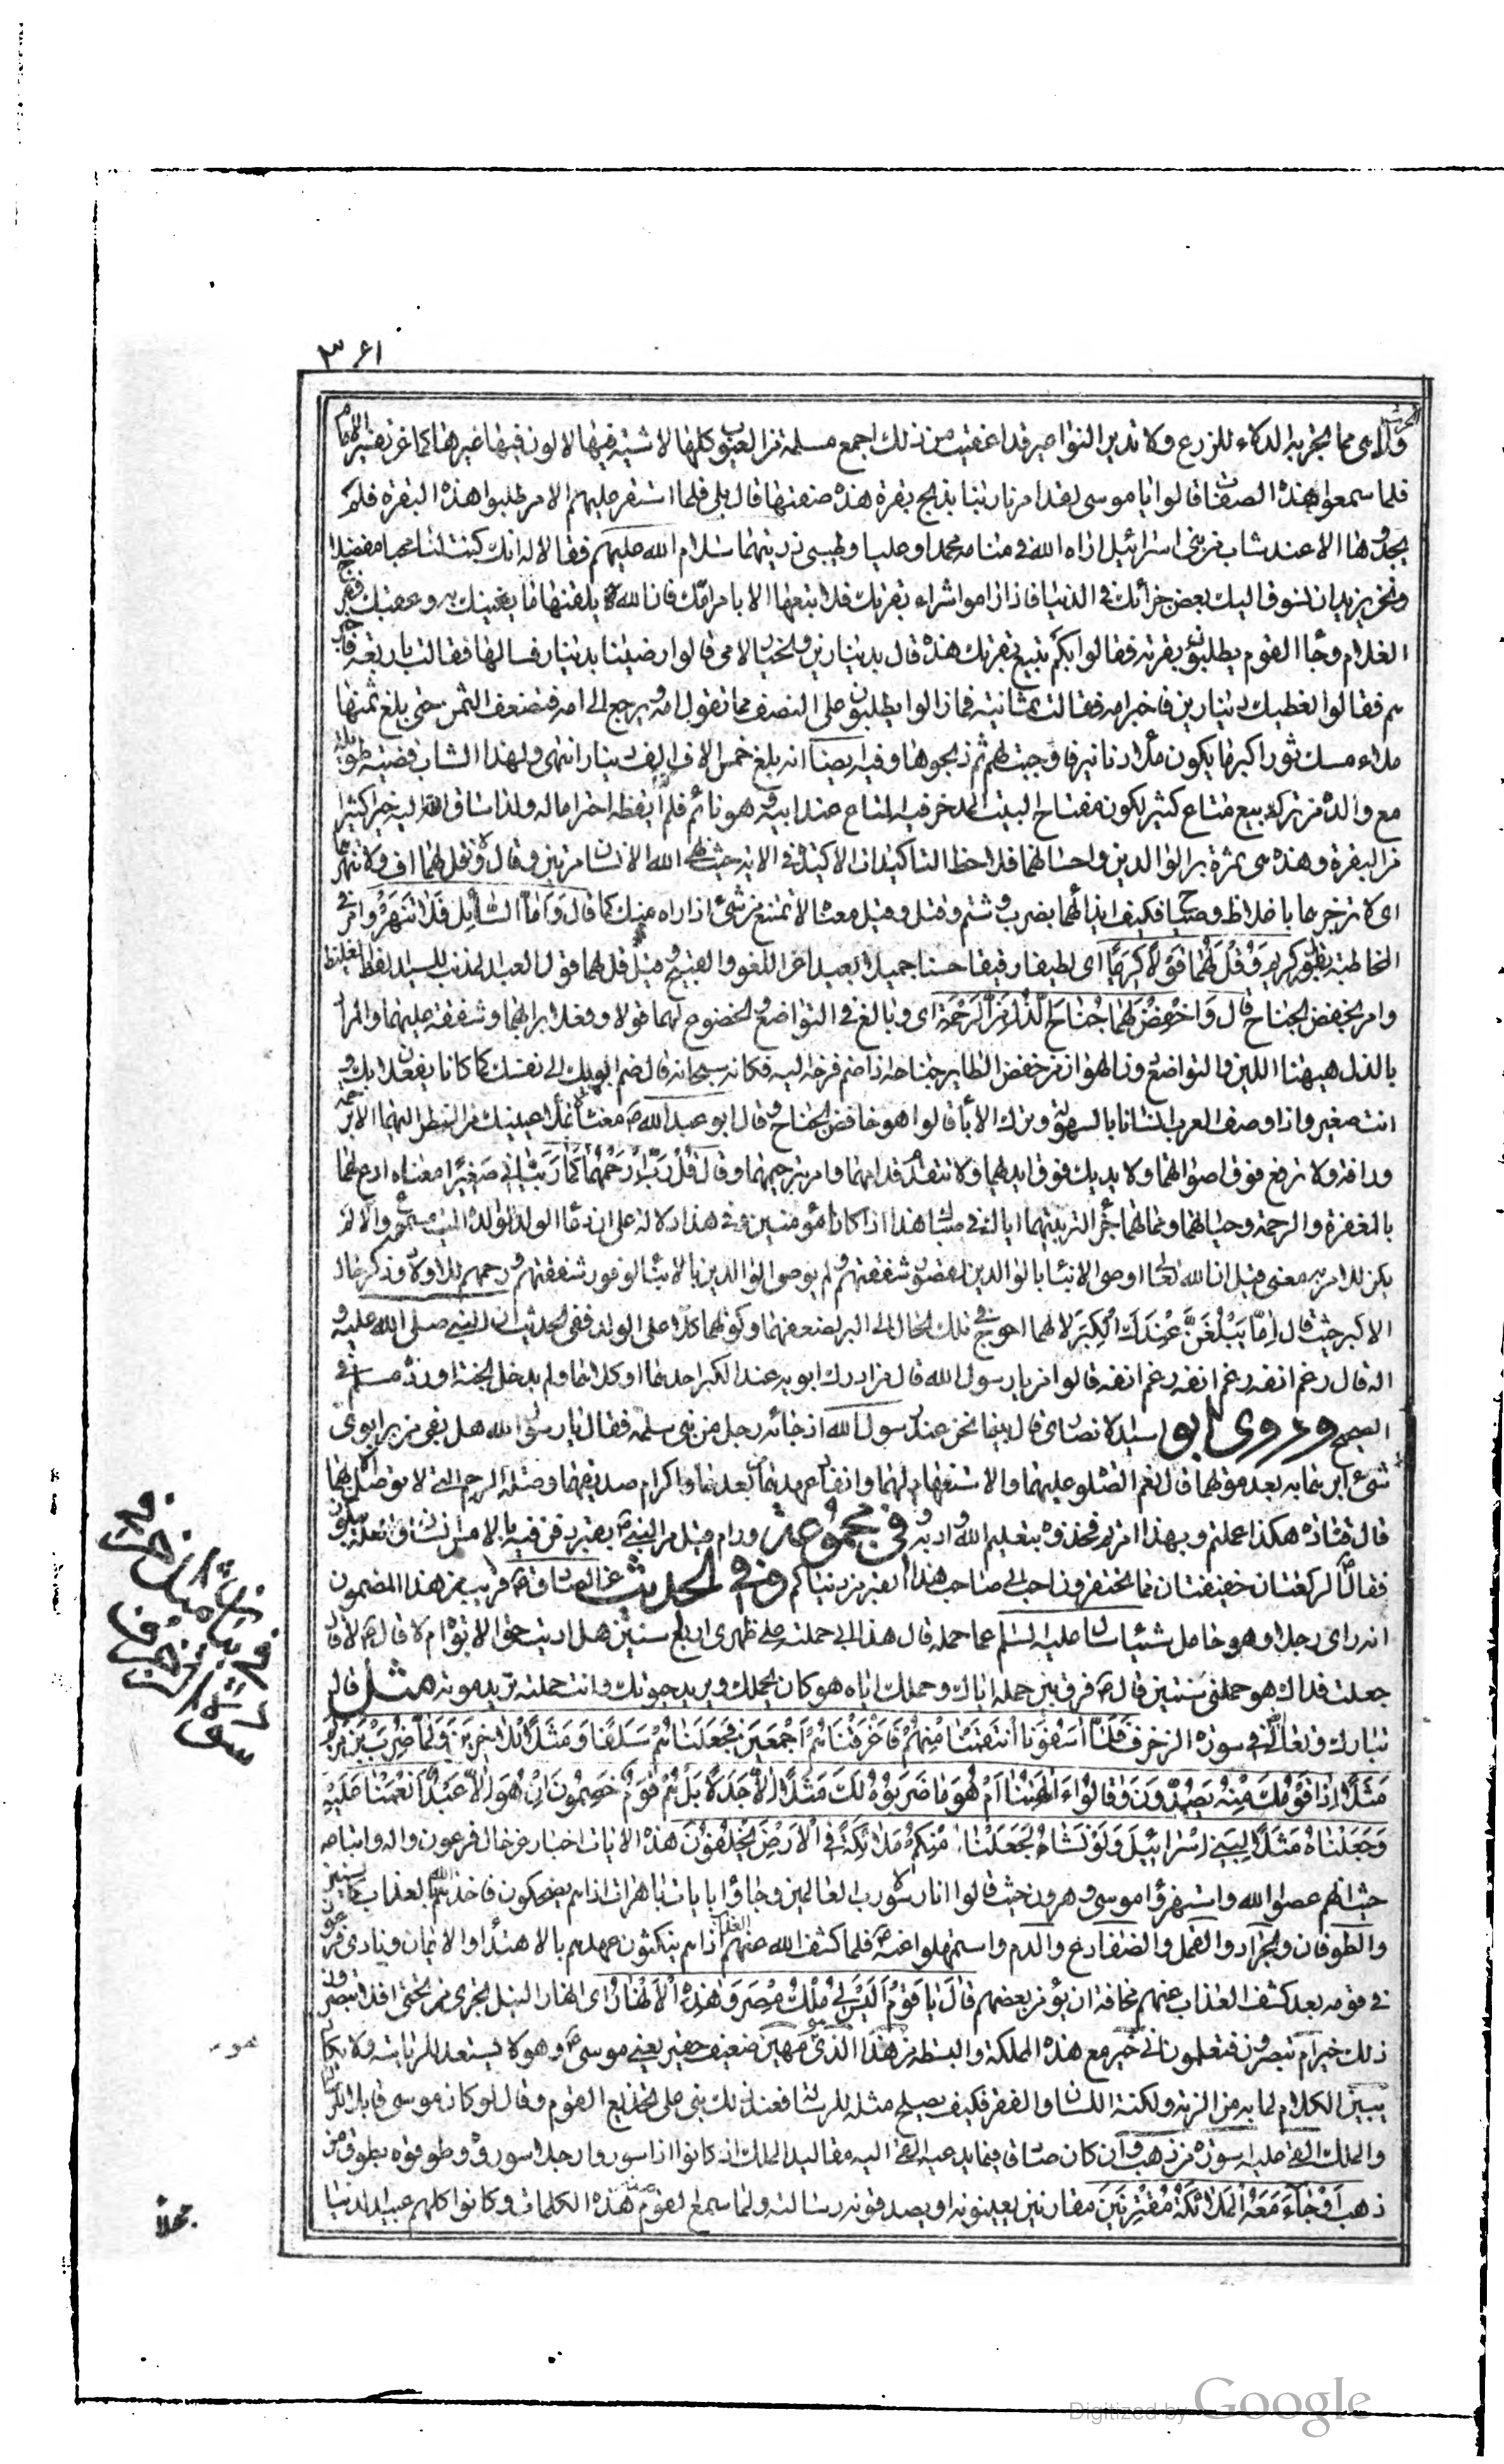 ٣٦١
ولا هى مما تجر به الدلاء للزرع ولا تدير النواعير قد اعفيت من ذلك اجمع مسلمة من العيوب كلها لا شية فيها لا لون فيها غيرها كما عن تفسير الامام
فلما سمعوا هذه الصفات قالوا يا موسى لقد امرنا ربنا بذبح بقرة هذه صفتها قال بلى فلما استقر عليهم الامر طلبوا هذه البقرة فلم
يجدوها الا عند شاب من بنى اسرائيل اراه الله فى منامه محمدا وعليا وطيبى ذريتهما سلام الله عليهم فقالا له انك كنت لنا محبا مفضلا
ونحن نريد ان نسوق اليك بعض جزائك فى الدنيا فاذا راموا شراء بقرتك فلا تبعها الا بامر امك فان الله يلقنها ما يغنيك به وعقبك ففرح
الغلام وجاء القوم يطلبون بقرته فقالوا بكم تبيع بقرتك هذه قال بدينارين والخيار لامى قالوا رضينا بدينار فسالها فقالت باربعة فاخبر
هم فقالوا نعطيك دينارين فاخبر امه فقالت بثمانية فما زالوا يطلبون على النصف مما تقول امه ويرجع الى امه فتضعف الثمن حتى بلغ ثمنها
ملاء مسك ثور اكبر ما يكون ملاء دنانير فاوجبت لهم ثم ذبحوها وفيه ايضا انه بلغ خمس الاف الف دينار انتهى ولهذا الشاب قضية طويلة
مع والده من تركه بيع متاع كثير لكون مفتاح البيت المدخر فيه المتاع عند ابيه وهو نائم فلم ايقظه احتراما له ولذا ساق الله اليه خيرا كثيرا
من البقرة وهذه هى ثمرة بر الوالدين واحسانهما فلاحظ التاكيدات الاكيدة فى الاية حيث نهى الله الانسان مرتين وقال ولا تقل لهما اف ولا تنهرهما
اى لا تزجرهما باغلاظ وصياح فكيف ايذائهما بضرب وشتم وقتل وقيل معناه لا تمتنع من شئ اذا اراده منك كما قال واما السائل فلا تنهر وامر فى
المخاطبة بطور كريم وقل لهما قولا كريما اى لطيفا رفيقا حسنا جميلا بعيدا عن اللغو والقبيح وقيل قل لهما قول العبد المذنب للسيد الفظ الغليظ
وامر بخفض الجناح قال واخفض لهما جناح الذل من الرحمة اى وبالغ فى التواضع والخضوع لهما قولا وفعلا برا بهما وشفقة عليهما والمراد
بالذل هيهنا اللين والتواضع دون الهوان من خفض الطاير جناحه اذا ضم فرخه اليه فكانه سبحانه قال ضم ابويك الى نفسك كما كانا يفعلان بك و
انت صغير واذا وصف العرب انسانا بالسهولة وترك الاباء قالوا هو خافض الجناح وقال ابو عبد الله ع معناه لا تملأ عينيك من النظر اليهما الا برحمة
ورافة ولا ترفع صوتك فوق اصواتهما ولا يديك فوق ايديهما ولا تتقدم قدامهما وامر بترحمهما وقال قل رب ارحمهما كما ربيانى صغيرا معناه ادع لهما
بالمغفرة والرحمة وحياتهما ومماتهما جزاء لتربيتهما اياك فى صباك هذا اذا كانا مؤمنين وفى هذا دلالة على ان دعاء الولد لوالده الميت مسموع والا لم
يكن للامر به معنى قيل ان الله تعالى اوصى الابناء بالوالدين لقصور شفقتهم ولم يوص الوالدين بالابناء لوفور شفقتهم ورحمهم للاولاد وذكر حال
الاكبر حيث قال اما يبلغن عندك الكبر لانهما احوج فى تلك الحال الى البر لضعفهما وكونهما كلا على الولد ففى الحديث ان النبى صلى الله عليه و
اله قال رغم انفه رغم انفه رغم انفه قالوا من يا رسول الله قال من ادرك ابويه عند الكبر احدهما او كلاهما ولم يدخل الجنة اورده مسلم فى
الصحيح وروى ابو اسيد الانصارى قال بينما نحن عند رسول الله اذ جائه رجل من بنى سلمة فقال يا رسول الله هل بقى من بر ابوى
شئ ابرهما به بعد موتهما قال نعم الصلوة عليهما والاستغفار لهما وانفاذ عهدهما من بعدهما واكرام صديقهما وصلة الرحم التى لا توصل الا بهما
قال قتادة هكذا علمتم وبهذا امرتم فخذوه بتعليم الله وادبه وفى مجموعة ورام قيل مر النبى بقبر دفن فيه بالامس انسان واهله يبكون
فقال لركعتان خفيفتان مما تحتقرون احب الى صاحب هذا القبر من دنياكم وفى الحديث عن الصادق ع قريب من هذا المضمون
انه راى رجلا وهو حامل شيئا سال عليه السلم عما حمله قال هذا ابى حملته على ظهرى اربع سنين هل اديت حق الابوة ام لا قال ع لا قال
جعلت فداك هو حملنى سنتين قال ع فرق بين حمله اياك وحملك اياه هو كان يحملك ويريد حيوتك وانت حملته تريد موته مثل قال
تبارك وتعالى فى سورة الزخرف فَلَمّا آسَفُونا انْتَقَمْنا مِنْهُمْ فَاَغْرَقْناهُمْ اَجْمَعينَ فَجَعَلْناهُمْ سَلَفًا وَمَثَلاً لِلآخِرينَ وَلَمّا ضُرِبَ ابْنُ مَرْيَمَ
مَثَلاً اِذا قَوْمُكَ مِنْهُ يَصِدُّونَ وَقالُوا ءَآلِهَتُنا خَيْرٌ اَمْ هُوَ ما ضَرَبُوهُ لَكَ اِلاّ جَدَلاً بَلْ هُمْ قَوْمٌ خَصِمُونَ اِنْ هُوَ اِلاّ عَبْدٌ اَنْعَمْنا عَلَيْهِ
وَجَعَلْناهُ مَثَلاً لِبَنى اِسْرائيلَ وَلَوْ نَشاءُ لَجَعَلْنا مِنْكُمْ مَلائِكَةً فِى الاَرْضِ يَخْلُفُونَ هذه الايات اخبار عن حال فرعون واله واتباعه
حيث انهم عصوا الله واستهزؤا موسى وهرون حيث قالوا انا رسولا رب العالمين وجاؤا بايات باهرات اذا هم يضحكون فاخذهم الله بعذاب كالسنين
والطوفان والجراد والقمل والضفادع والدم واستمهلوا عنه فلما كشف الله عنهم العذاب اذا هم ينكثون عهدهم بالاهتداء والايمان ونادى فرعون
فى قومه بعد كشف العذاب عنهم مخافة ان يؤمن بعضهم قال يا قوم اليس لى ملك مصر وهذه الانهار اى انهار النيل تجرى من تحتى افلا تبصرون
ذلك خير ام تبصرون فتعلمون انى خير مع هذه المملكة والبسطة من هذا الذى هو مهين ضعيف حقير يعنى موسى ع وهو لا يستعد للرياسة ولا يكاد
يبين الكلام لما به من الرتة ولكنة اللسان والفقر فكيف يصلح مثله للرسالة فعند ذلك بنى على تخديع القوم وقال لو كان موسى قابلا للرسالة
والملك القى عليه اسورة من ذهب وان كان صادقا فيما يدعيه القى اليه مقاليد الملك اذ كانوا اذا سوروا رجلا سوروه وطوقوه بطوق من
ذهب او جاء معه الملائكة مقترنين مقارنين يعينونه او يصدقونه رسالته ولما سمع القوم هذه الكلمات وكانوا كلهم عبيد الدنيا
Digitized by Google